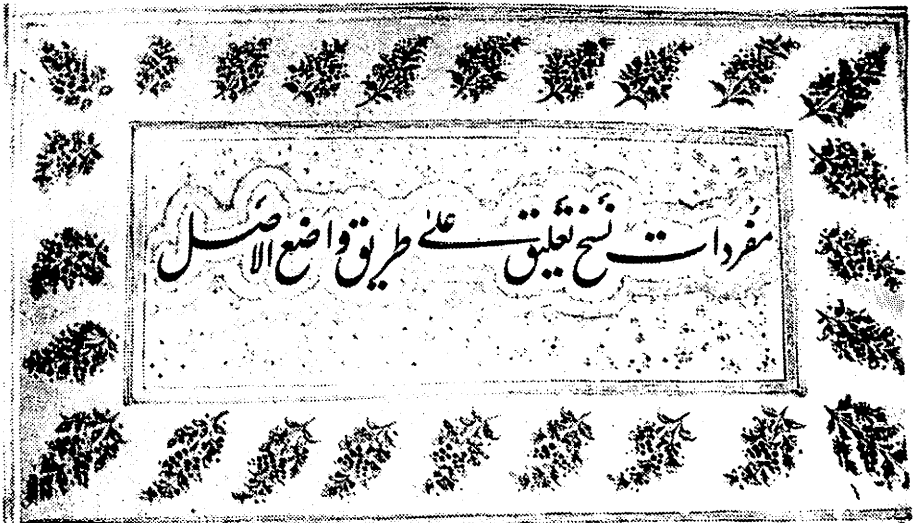 مفردات نسخ تعلیق علی طریق واضع الاصل